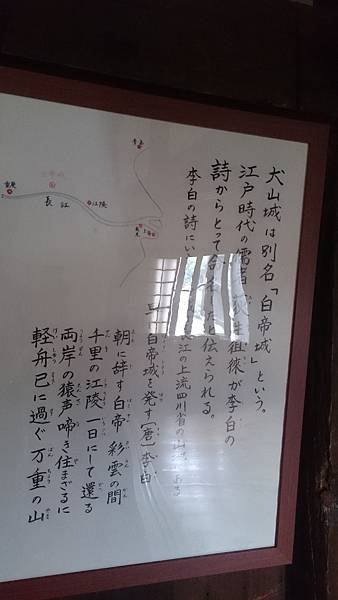 犬山城は別名「白帝城」という。
江戸時代の儒者 荻生徂徠が李白の
詩からとって命名したと伝えられる。
李白の詩にい 長江の上流四川省の山 ある
早 白帝城を発す〔唐〕李白
朝に辞す白帝 彩雲の間
千里の江陵 一日にして還る
両岸の猿声 啼き住まざるに
軽舟已に過ぐ 万重の山
長江
江陵
重慶